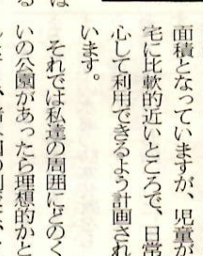 面積となっていますが、児童が
宅に比較的近いところで、日常
心して利用できるよう計画され
います。
それでは私達の周囲にどのく
いの公園があったら理想的かと